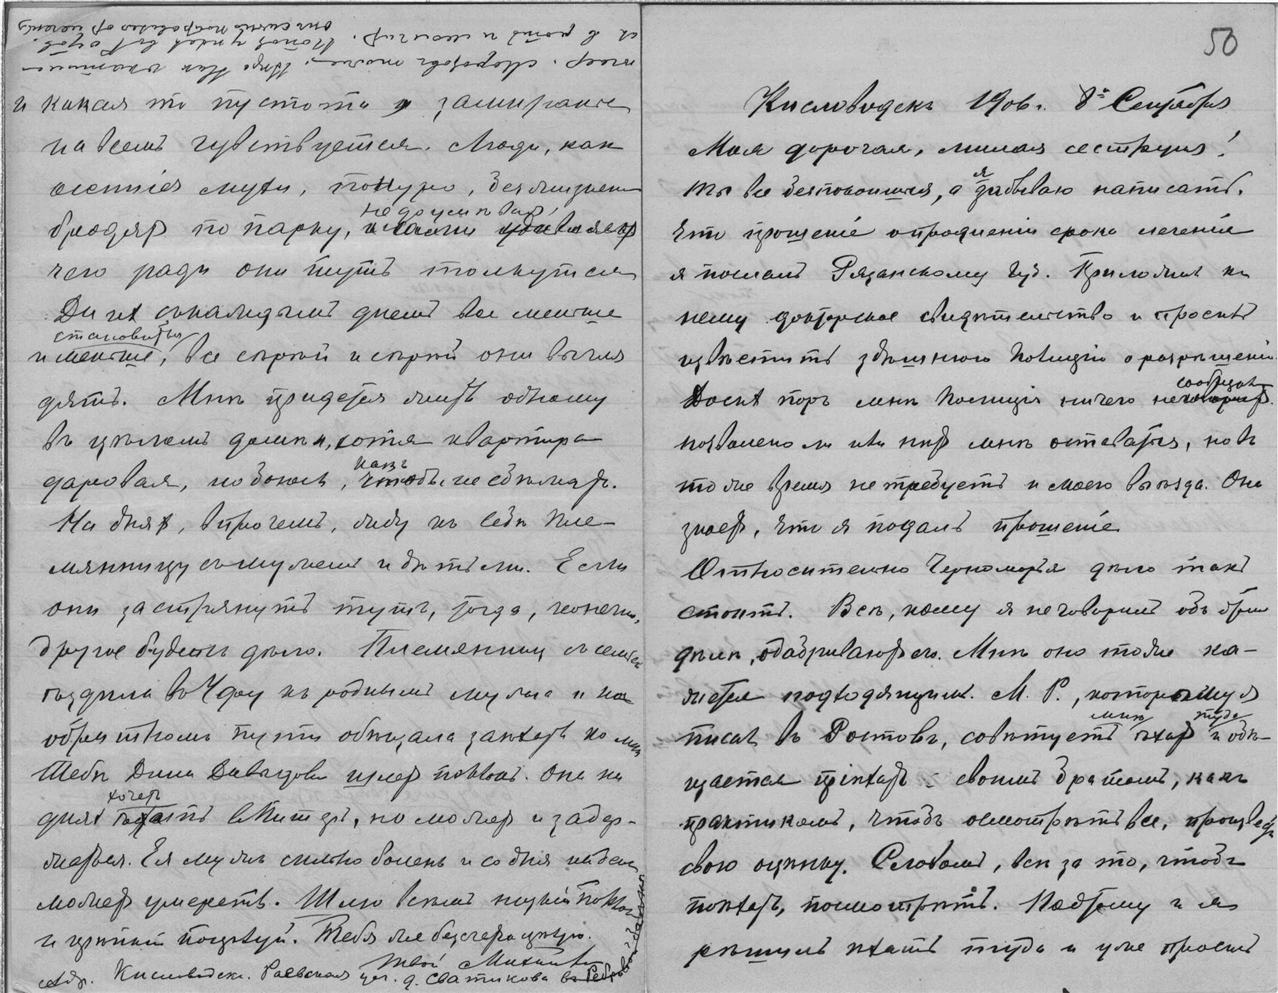 50
Кисловодскъ 1906 г. 8го Сентября
Моя дорогая, милая сеструня!
Ты все безпокоишься, а я забываю написать,
что прошеніе о продленіи срока леченія
я послалъ Рязанскому Губ. Приложилъ къ
нему докторское свидѣтельство и просилъ
извѣстить здѣшнюю полицію о разрѣшеніи.
До сихъ поръ мнѣ полиція ничего не сообщает
позволено ли или нѣтъ мнѣ оставаться, но въ
то же время не требуетъ и моего выезда. Она
знает, что я подалъ прошеніе
Относительно Черноморья дѣло такъ
стоитъ. Всѣ, кому я не говорилъ объ этом
дѣлѣ, одобривают его. Мнѣ оно тоже ка-
жется подходящимъ. М. Р., которому я
писалъ въ Ростовъ, совѣтуетъ мнѣ ѣхать туда и обѣ-
щается пріехать съ своимъ братомъ, какъ
практикомъ, чтобъ осмотрѣть все, произвести
свою оцѣнку. Словомъ, всѣ за то, чтобъ
поѣхать, посмотрѣть. Поэтому и я
рѣшилъ ѣхать туда и уже просилъ
и какая то пустота и замиранье
на всемъ чувствуется. Люди, как
осеннія мухи, понуро, безжизненно
бродят по парку, недоумѣвая,
чего ради они тутъ толкутся
Да их съ каждымъ днемъ все меньше
и меньше становится, все сѣрѣй и сѣрѣй они выгля
дятъ. Мнѣ придется жить одному
въ цѣломъ домѣ и, хотя квартира
даровая, но боюсь, какъ бы не сбѣжать.
На днях, впрочемъ, жду къ себѣ пле-
мянницу съ мужемъ и дѣтьми. Если
они застрянутъ тутъ, тогда, конечно,
другое будетъ дѣло. Племянница съ семьей
ездила въ Уфу къ роднымъ мужа и на
обратномъ пути обѣщала заѣхать ко мнѣ
Тебѣ Дина Давыдовна шлет поклонъ. Она на
днях хочет въ Питеръ, но может и задер-
жаться. Ея мужъ сильно боленъ и со дня на день
может умереть. Шлю всемъ низкій поклон
и крѣпкій поцѣлуй. Тебя же безсчетно цѣлую.
Твой Михаилъ
Адр. Кисловодскъ. Раевская ул. д. Сватикова